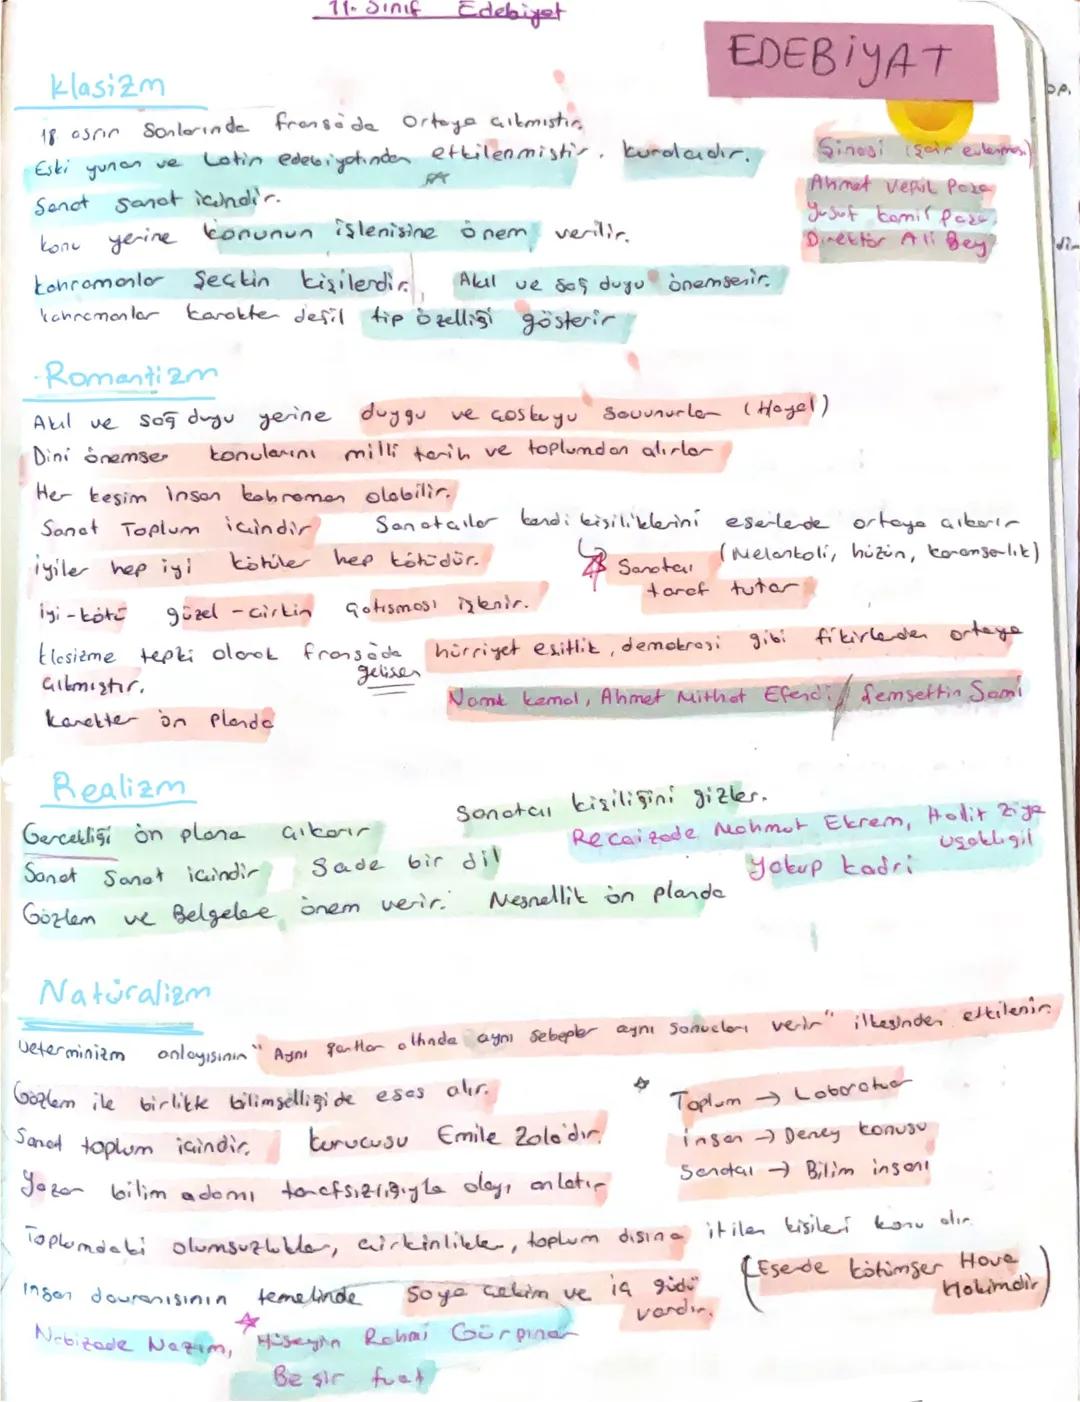 11. Sınıf Edebiyat
EDEBİYAT
Klasizm
18. asrın Sonlarında fransa'da Ortaya çıkmıştır.
Eski yunan ve Latin edebiyatından etkilenmiştir. kuralcıdır.
Sanat sanat içindir.
konu yerine konunun işlenişine önem verilir.
kahramanlar Seçkin kişilerdir. Akıl ve sağ duyu önemsenir.
kahramanlar karakter değil tip özelliği gösterir
Şinasi (şair evlenmesi)
Ahmet Vefik Paşa
Yusuf kamil paşa.
Direktör Ali Bey
Romantizm
Akıl ve sağ duyu yerine duygu ve coşkuyu savunurlar (Hayal)
Dini önemser konularını milli tarih ve toplumdan alırlar
Her kesim insan kahraman olabilir.
Sanat Toplum içindir Sanatçılar kendi kişiliklerini eserlerde ortaya çıkarır
(Melankoli, hüzün, karamsarlık)
iyiler hep iyi kötüler hep kötüdür. Sanatçı
taraf tutar
iyi-kötü güzel-çirkin çatışması işlenir.
klasizme tepki olarak fransa'da gelişen hürriyet eşitlik, demokrasi gibi fikirlerden ortaya
çıkmıştır.
Karakter ön Planda
Namık kemal, Ahmet Mithat Efendi / Şemsettin Sami
Realizm
Gerçekliği ön plana çıkarır Sanatçı kişiliğini gizler.
Sanat Sanat içindir Sade bir dil
Gözlem ve Belgelere önem verir. Nesnellik ön planda
Recaizade Mahmut Ekrem, Halit Ziya
Uşaklıgil
Yakup kadri
Natüralizm
Determinizm anlayışının "Aynı şartlar altında aynı sebepler aynı sonuçları verir" ilkesinden etkilenir.
Gözlem ile birlikte bilimselliği de esas alır.
Sanat toplum içindir. kurucusu Emile Zola'dır.
Yazar bilim adamı tarafsızlığıyla olayı anlatır
Toplum → Laboratuar
insan → Deney konusu
Sanatçı → Bilim insanı
Toplumdaki olumsuzluklar, çirkinlikler, toplum dışına itilen kişileri konu alır.
İnsan davranışının temelinde Soya çekim ve iç güdü
vardır.
(Eserde kötümser Hava
Hakimdir)
Nabizade Nazım, Hüseyin Rahmi Gürpınar
Beşir fuat